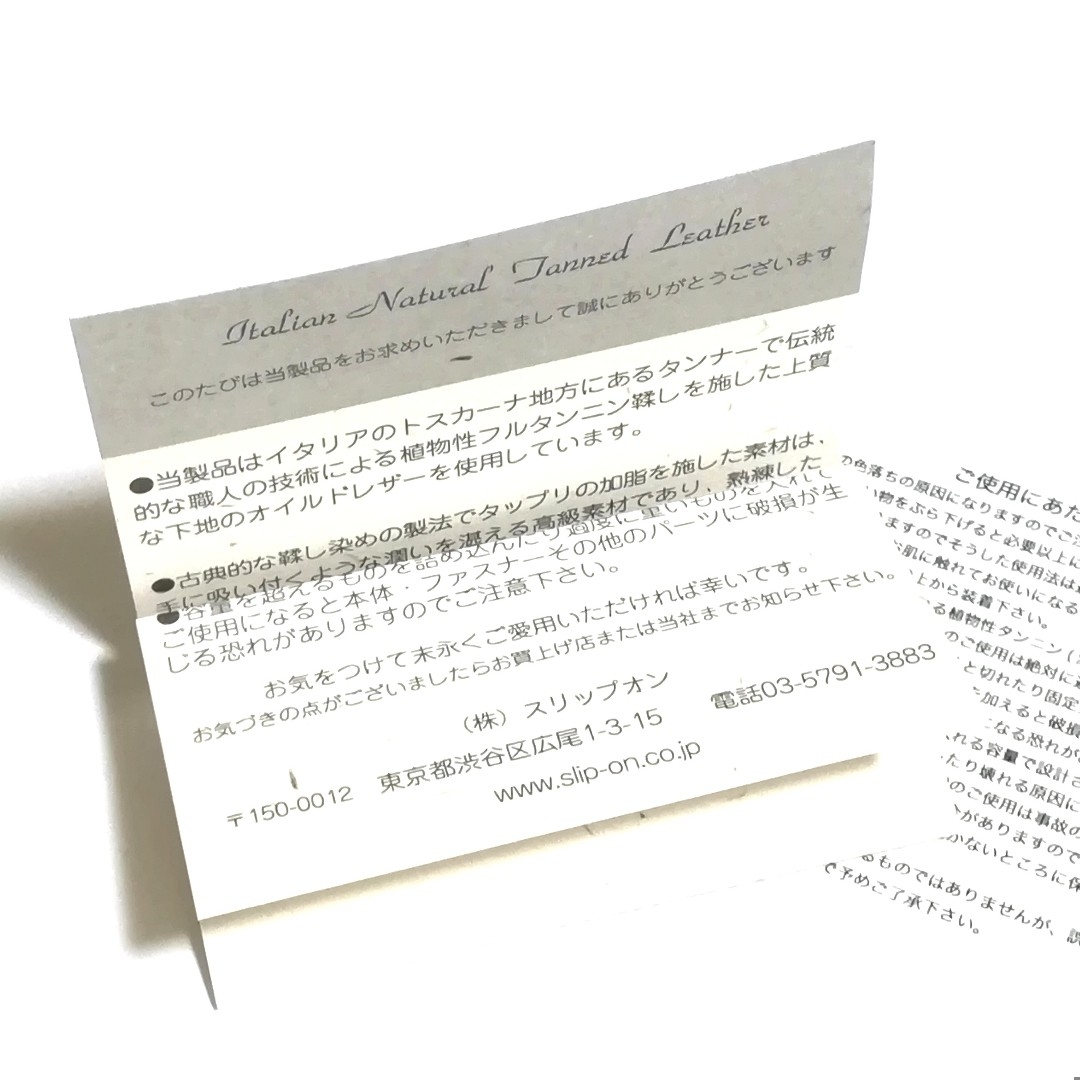 Italian Natural Tanned Leather
このたびは当製品をお求めいただきまして誠にありがとうございます
●当製品はイタリアのトスカーナ地方にあるタンナーで伝統
的な職人の技術による植物性フルタンニン鞣しを施した上質
な下地のオイルドレザーを使用しています。
●古典的な鞣し染めの製法でタップリの加脂を施した素材は、
手に吸い付くような潤いを湛える高級素材であり、熟練した
●容量を超えるものを詰め込んだり過度に重いものを入れて
ご使用になると本体・ファスナーその他のパーツに破損が生
じる恐れがありますのでご注意下さい。
お気をつけて末永くご愛用いただければ幸いです。
お気づきの点がございましたらお買上げ店または当社までお知らせ下さい。
(株)スリップオン
〒150-0012 東京都渋谷区広尾1-3-15 電話03-5791-3883
www.slip-on.co.jp
ご使用にあた
の色落ちの原因になりますのでご注
い物をぶら下げると必要以上に
いますのでそうした使用法は
お肌に触れてお使いになる
上から装着下さい。
る植物性タンニン(
のご使用は絶対に
と切れたり固定
加えると破損
になる恐れが
れる容量で設計さ
たり壊れる原因に
のご使用は事故の
がありますので
かないところに保
るものではありませんが、誤
で予めご了承下さい。